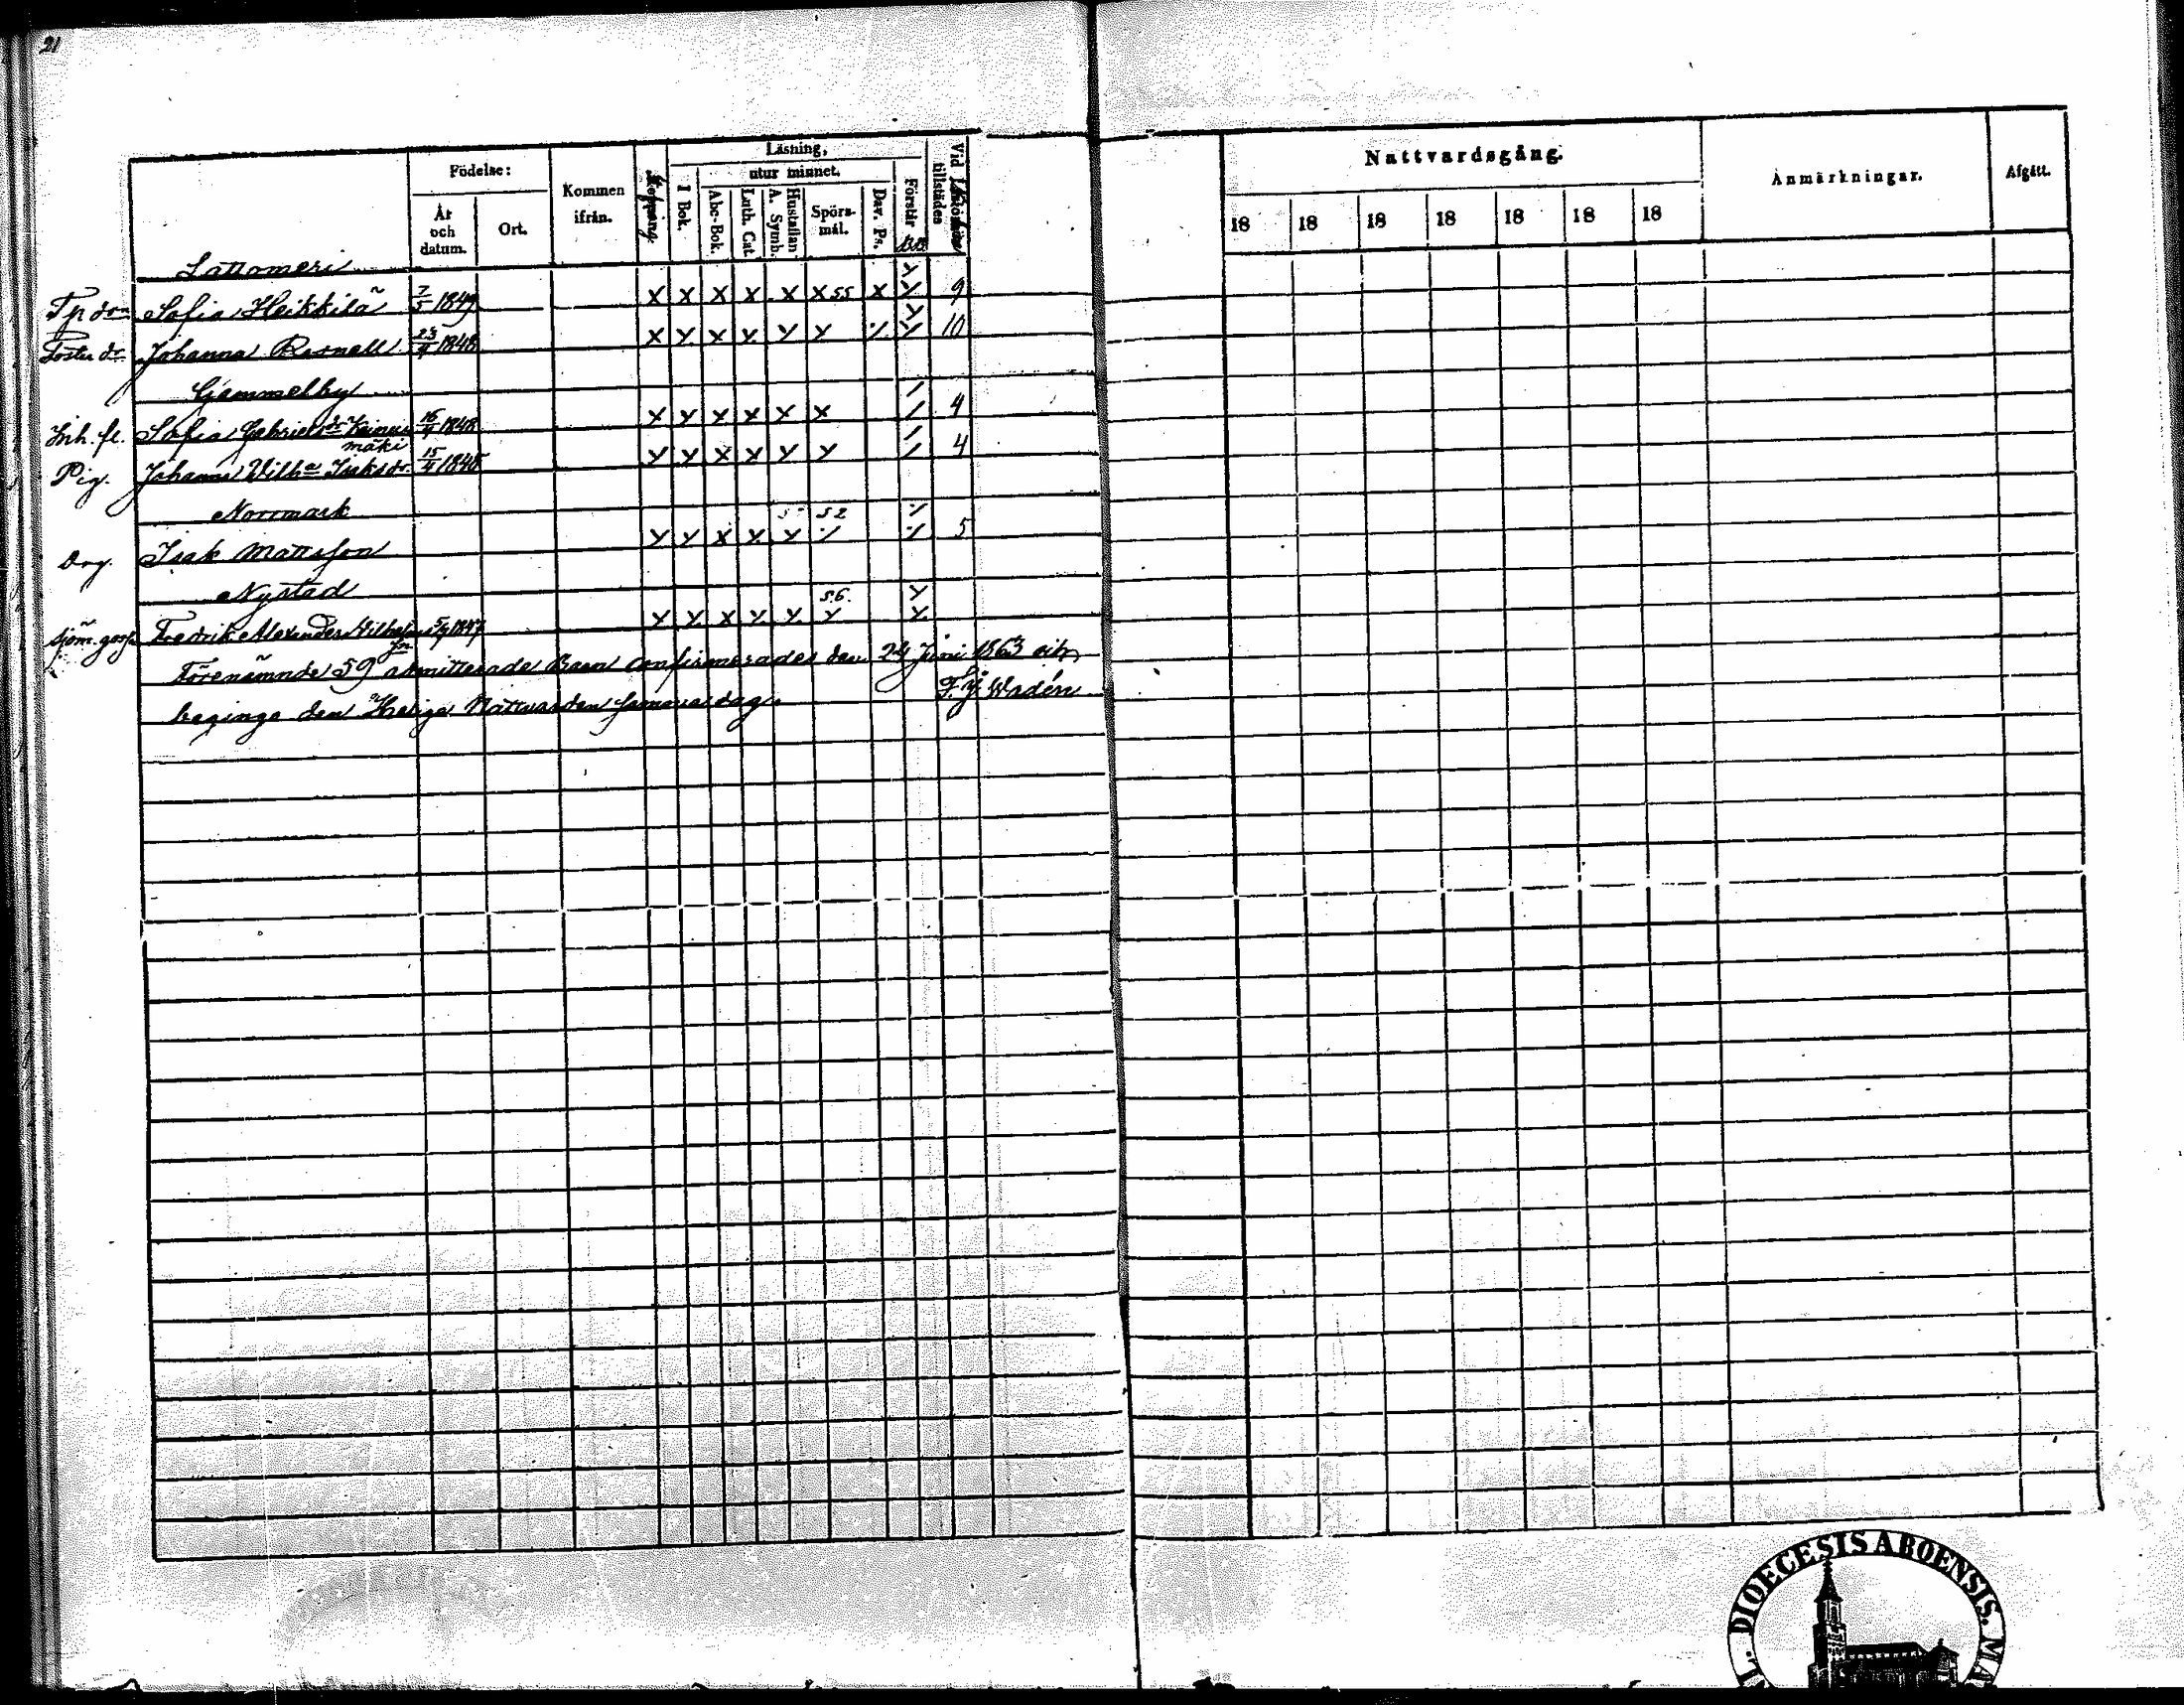 21
Födelse:
År och datum.
Ort.
Kommen ifrån.
Koppang.
Läsning,
I Bok.
utur minnet.
Abc-Bok.
Luth. Cat.
Hustaflan A. Symb.
Spörs-mål.
Dav. Ps.
Förstår
Vid tillstädes
Nattvardsgång.
18 18 18 18 18 18 18
Anmärkningar.
Afgått.
Lattomeri
Tp dr Sofia Heikkilä 7/5 1849 x x x x x x 55 x 9
Foster dr Johanna Rosnell 23/4 1848 x x x x x x 10
Gammelby
Inh. fl. Sofia Gabrielsdr 16/4 1848 x x x x x x 4
mäki
Pig. Johanna Wilha Isaksdr. 15/4 1848 x x x x x x 4
Norrmark
52
Drg. Isak Mattsson x x x x x 5
Nystad
56.
Sjöm. gosse Fredrik Alexander Wilhelmsson 5/9 1847 x x x x x x
Förenämnde 59 admitterade Barn confirmerades den 24 Juni 1863 och
beginge den Heliga Nattvarden samma dag. F. J. Widén
DIOECESIS ABOENSIS. MA